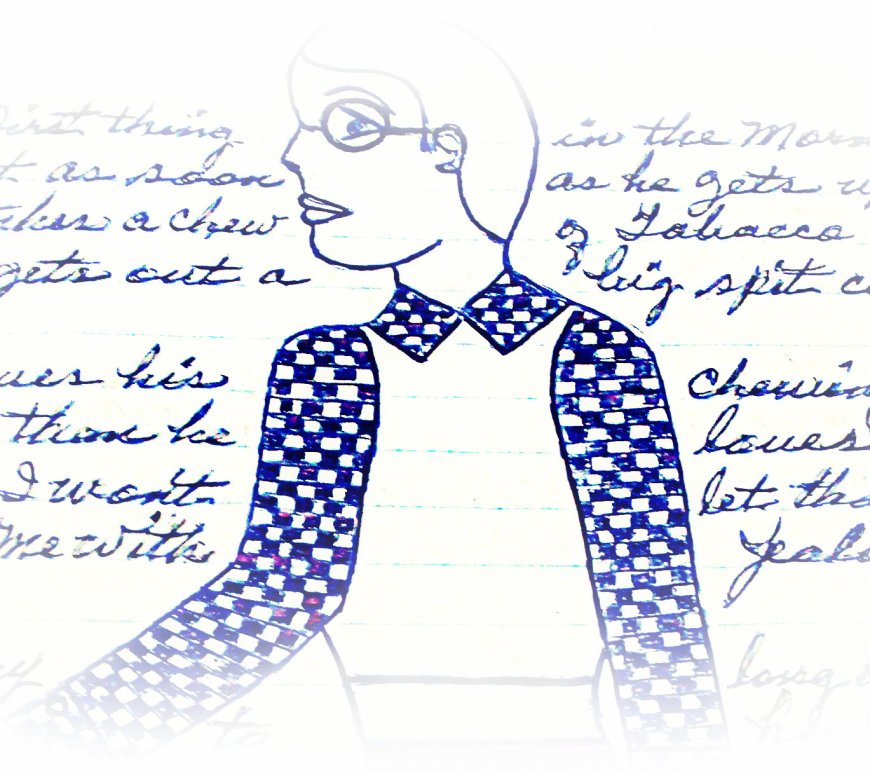 first thing in the Morn
t as soon as he gets u
akes a chew of Tobacco
gets out a big spit c
ves his chewin
than he loves
I won't let tha
Me with Jealo
long
to